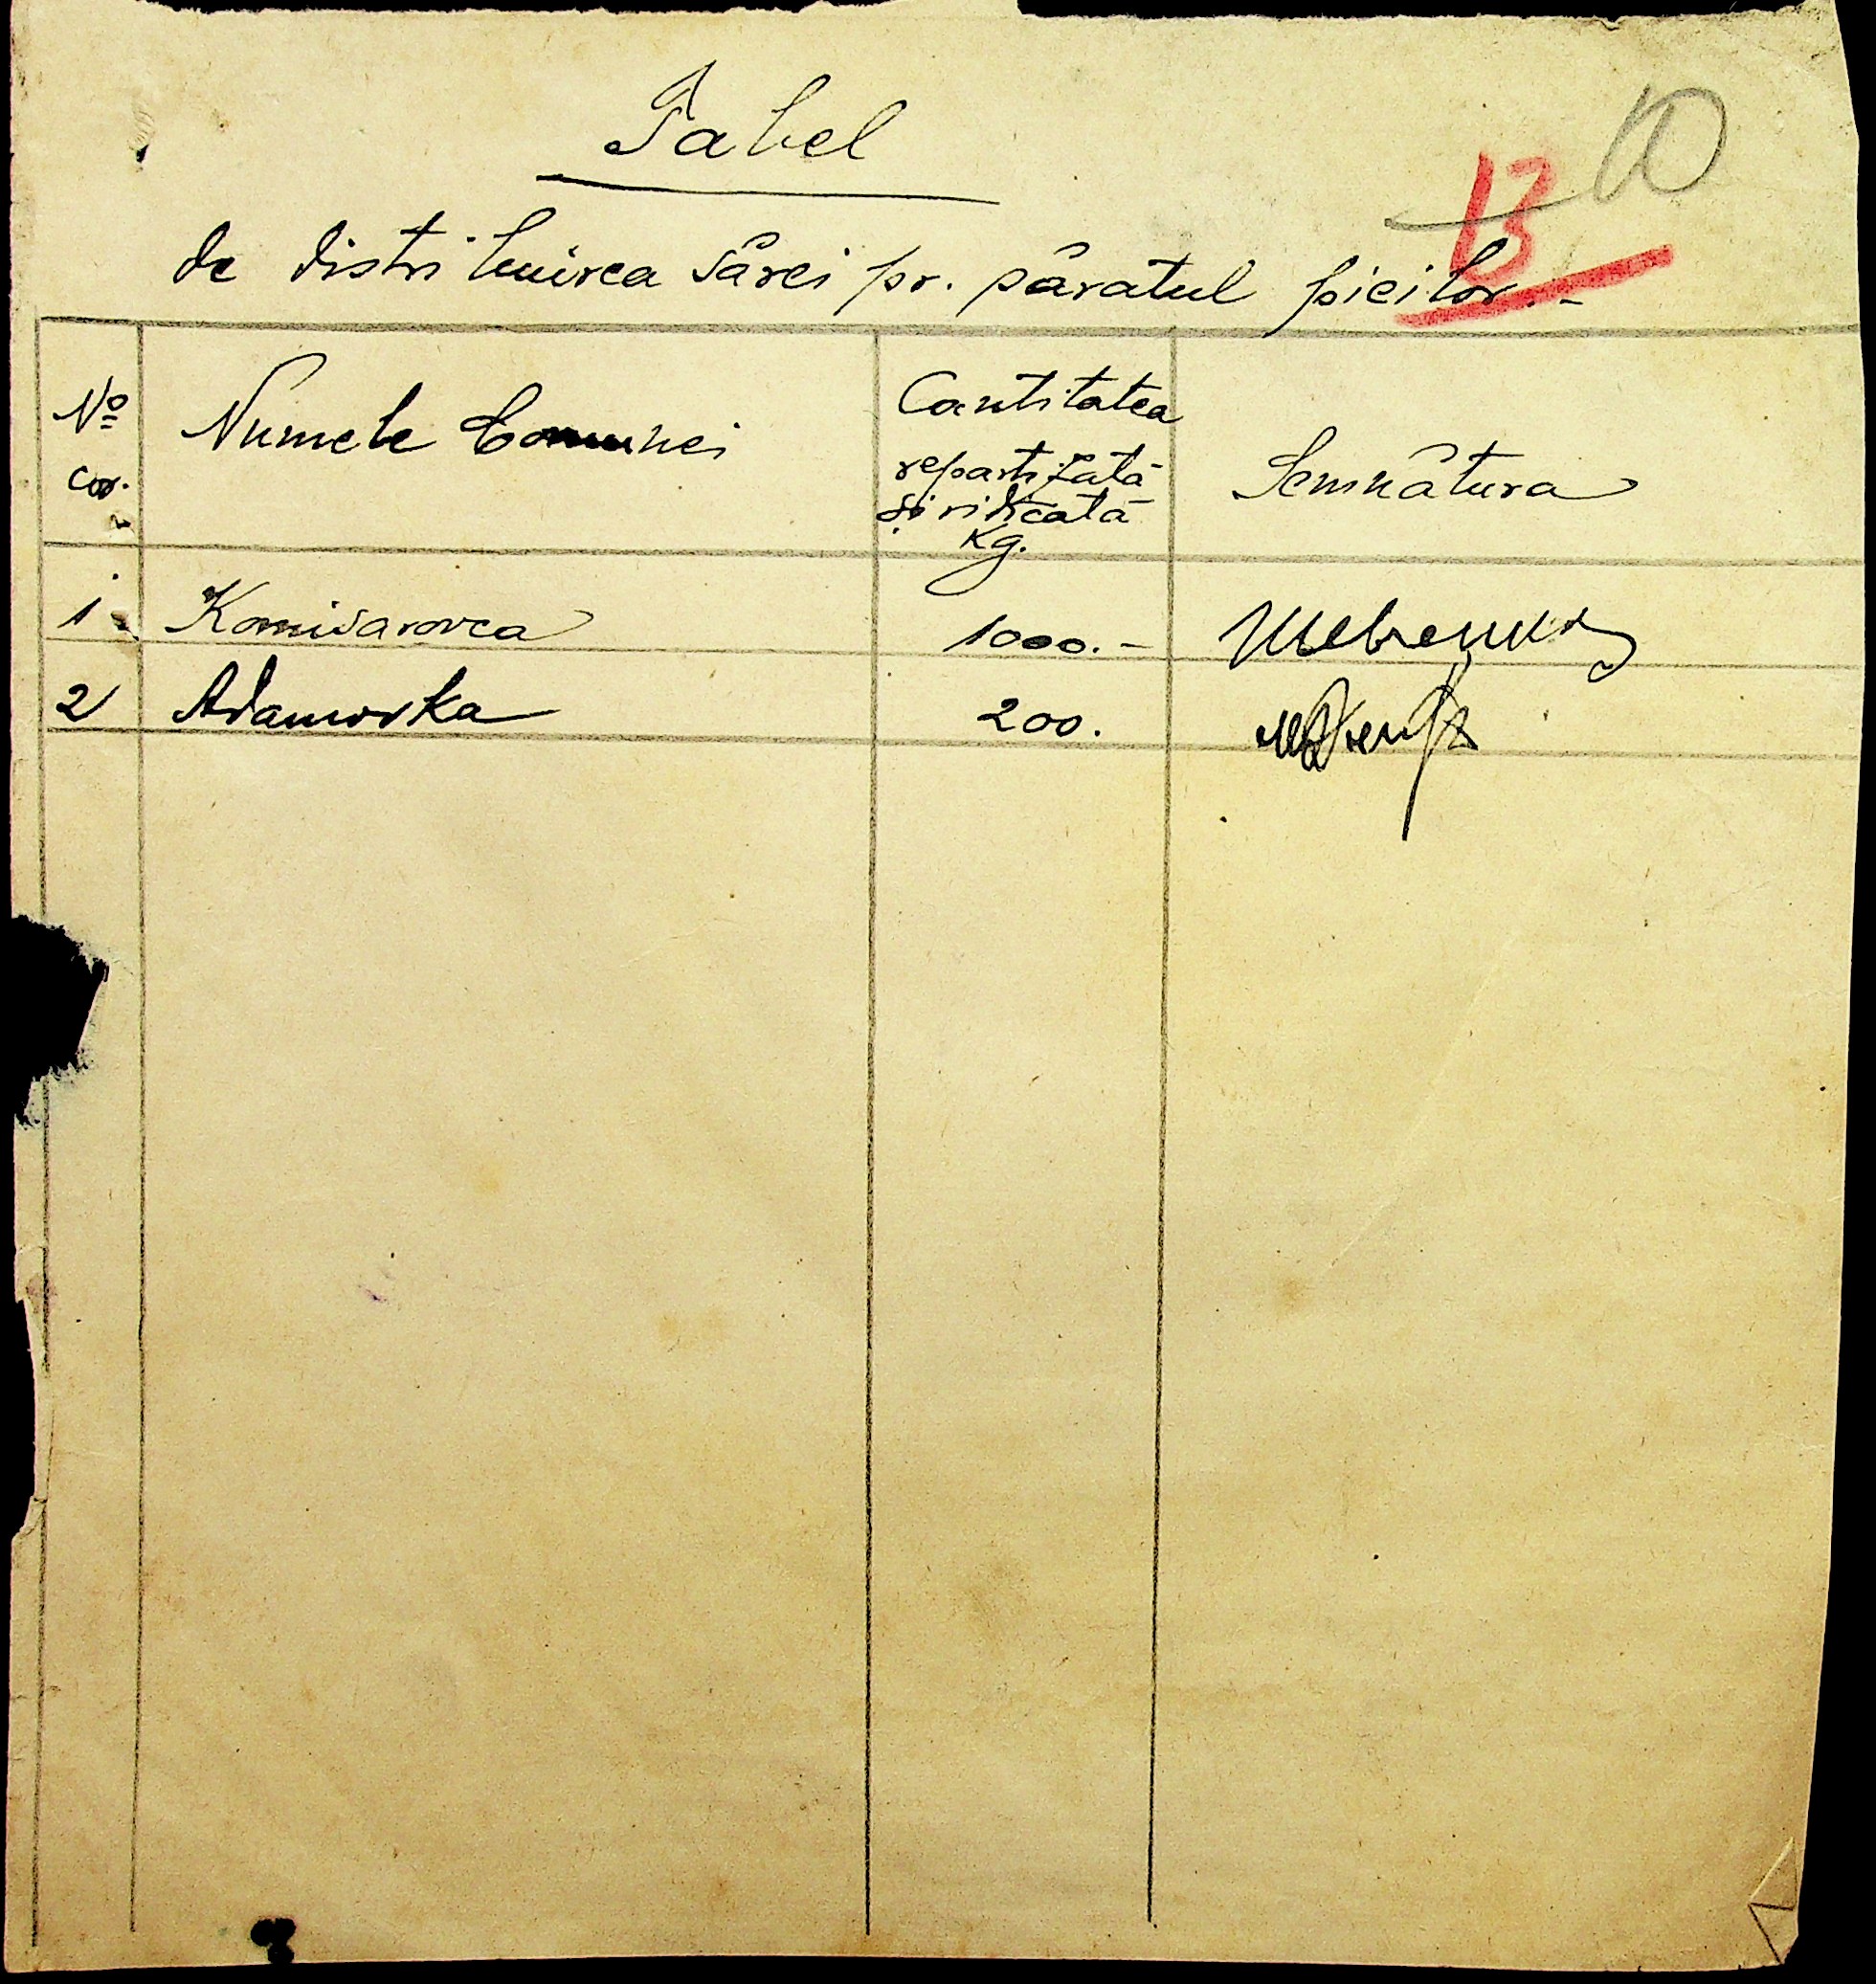 Tabel
10
13
de distribuirea sărei pr. săratul pieilor.-
No cor.
Numele Comunei
Cantitatea
repartizată
și ridicată
Kg.
Semnătura
1 Komisarovca 1000.- Шевченко
2 Adamovka 200.